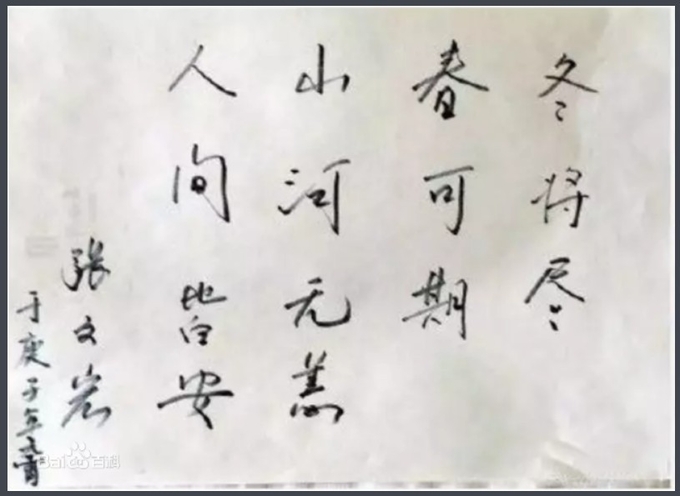 冬将尽
春可期
山河无恙
人间皆安
张文宏
于庚子年元宵
Baidu百科